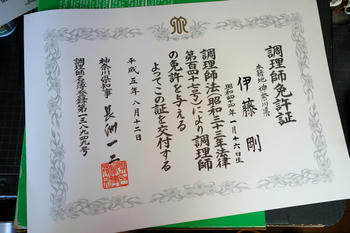 調理師免許証
本籍地 神奈川県
伊藤 剛
昭和四十四年一月十六日生
調理師法(昭和三十三年法律
第百四十七号)により調理師
の免許を与える
よってこの証を交付する
平成五年八月十二日
神奈川県知事 長洲一二
調理師名簿登録第一三八九四九号